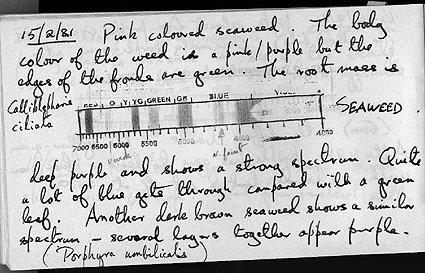 15/2/81 Pink coloured seaweed. The body
colour of the weed is a pink/purple but the
edges of the fronds are green. The root mass is
Calliblepharis
ciliata
RED O Y YG GREEN GB BLUE VIOLET
SEAWEED
7000 6500 6000 5000 4500 4000
N. point
deep purple and shows a strong spectrum. Quite
a lot of blue gets through compared with a green
leaf. Another dark brown seaweed shows a similar
spectrum – several layers together appear purple.
(Porphyra umbilicalis)